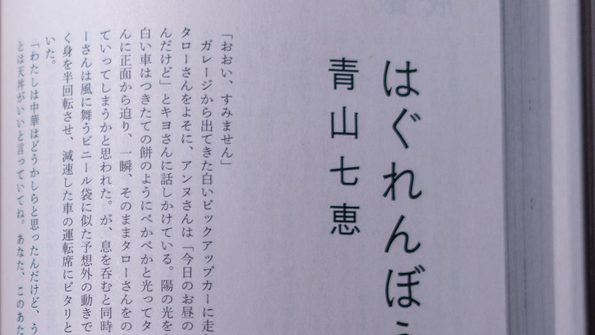 はぐれんぼう
青山七恵
「おおい、すみません」
ガレージから出てきた白いピックアップカーに走
タローさんをよそに、アンヌさんは「今日のお昼の
んだけど」とキヨさんに話しかけている。陽の光を
白い車はつきたての餅のようにぺかぺかと光ってタ
んに正面から迫り、一瞬、そのままタローさんをの
ていってしまうかと思われた。が、息を呑むと同時
ーさんは風に舞うビニール袋に似た予想外の動きで
く身を半回転させ、減速した車の運転席にピタリと
いた。
「わたしは中華はどうかしらと思ったんだけど、う
とは天丼がいいと言っていてね。あなた、このあた